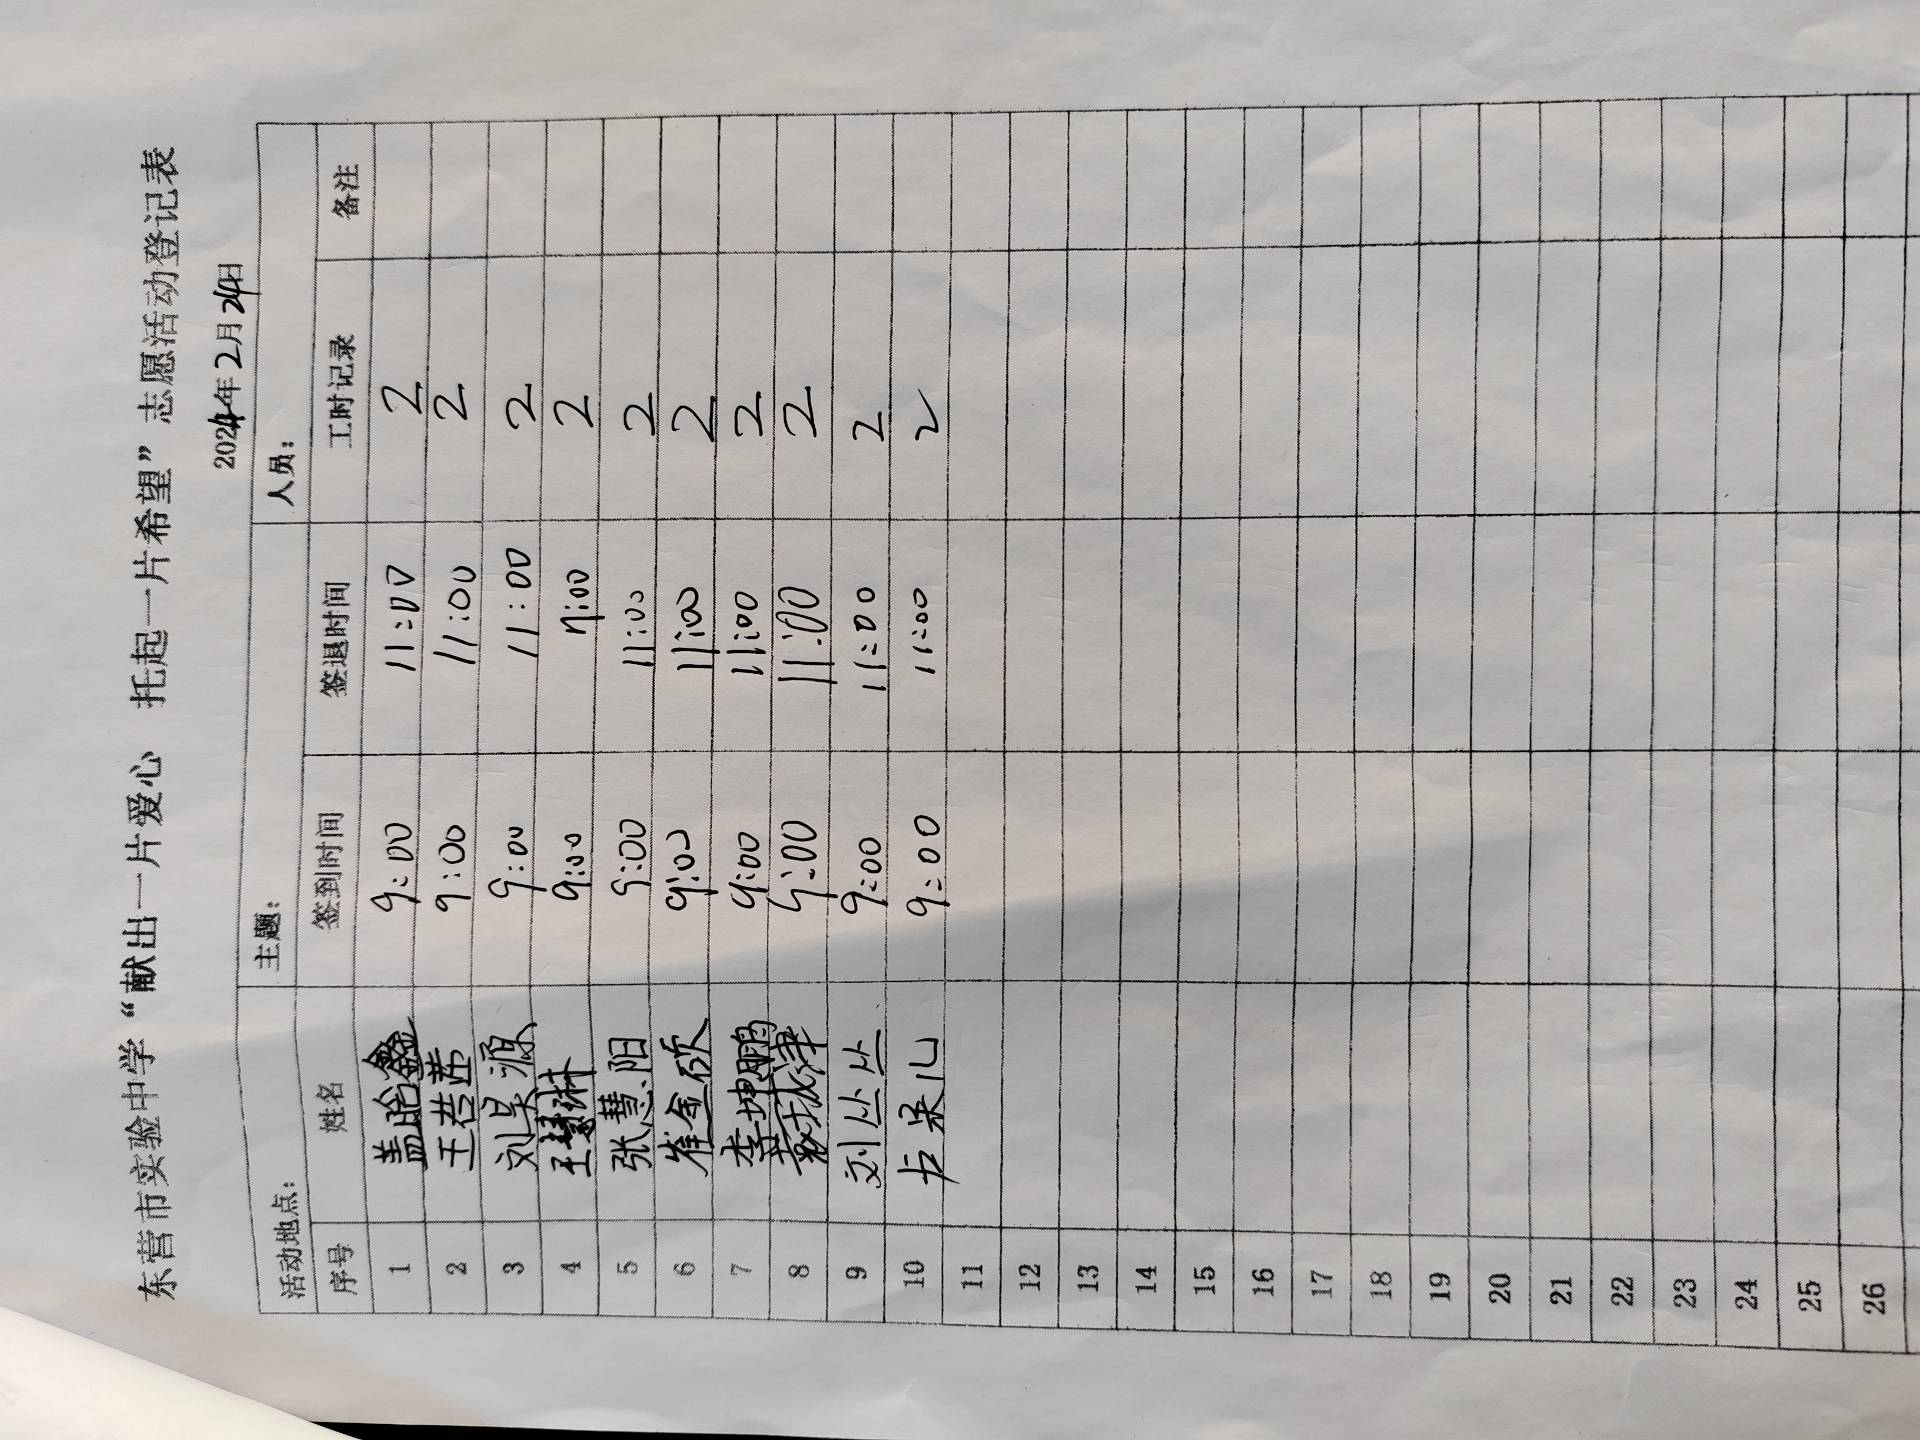 东营市实验中学“献出一片爱心 托起一片希望”志愿活动登记表
2024年2月24日
活动地点： 主题： 人员：
序号 姓名 签到时间 签退时间 工时记录 备注
1 盖晗鑫 9:00 11:00 2
2 王若茜 9:00 11:00 2
3 刘昊源 9:00 11:00 2
4 王慧琳 9:00 11:00 2
5 张慧阳 9:00 11:00 2
6 崔金硕 9:00 11:00 2
7 李坤鹏 9:00 11:00 2
8 9:00 11:00 2
9 刘丛丛 9:00 11:00 2
10 9:00 11:00 2
11
12
13
14
15
16
17
18
19
20
21
22
23
24
25
26